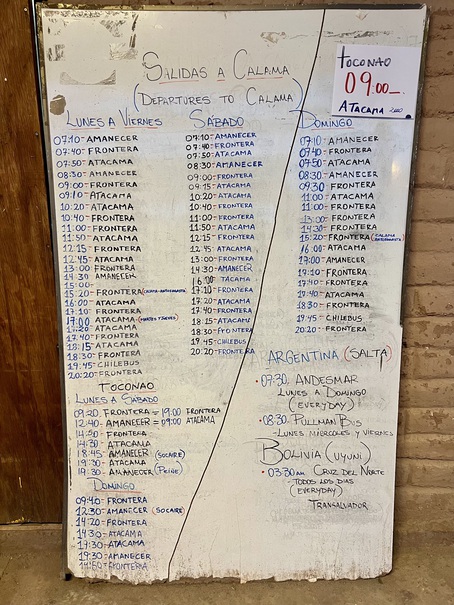 SALIDAS A CALAMA
(DEPARTURES TO CALAMA)
TOCONAO
09:00
ATACAMA 2000
LUNES A VIERNES
07:10-AMANECER
07:40-FRONTERA
07:50-ATACAMA
08:30-AMANECER
09:00-FRONTERA
09:10-ATACAMA
10:20-ATACAMA
10:40-FRONTERA
11:00-FRONTERA
11:50-ATACAMA
12:15-FRONTERA
12:45-ATACAMA
13:00 FRONTERA
14:30 AMANECER
15:00-
15:20-FRONTERA (CALAMA-ANTOFAGASTA)
16:00 ATACAMA
17:10-FRONTERA
17:00 ATACAMA (MARTES Y JUEVES)
17:20 ATACAMA
17:40-FRONTERA
18:15 ATACAMA
18:30-FRONTERA
19:45-CHILEBUS
20:20-FRONTERA
SABADO
07:10-AMANECER
07:40-FRONTERA
07:50-ATACAMA
08:30-AMANECER
09:00-FRONTERA
09:15-ATACAMA
10:20-ATACAMA
10:40-FRONTERA
11:00-FRONTERA
11:50-ATACAMA
12:15-FRONTERA
12:45-ATACAMA
13:00-FRONTERA
14:30-AMANECER
16:00 TACAMA
17:10-FRONTERA
17:20-ATACAMA
17:40-FRONTERA
18:15-ATACAMA
18:30-FRONTERA
19:45-CHILEBUS
20:20-FRONTERA
DOMINGO
07:10-AMANECER
07:40-FRONTERA
07:50-ATACAMA
08:30-AMANECER
09:30 FRONTERA
11:00 ATACAMA
11:00 FRONTERA
13:00-FRONTERA
14:30-FRONTERA
15:20-FRONTERA (CALAMA ANTOFAGASTA)
16:00 ATACAMA
17:00-AMANECER
17:10-FRONTERA
17:40-FRONTERA
17:40-ATACAMA
18:30-FRONTERA
19:45-CHILEBUS
20:20-FRONTERA
TOCONAO
LUNES A SABADO
09:20 FRONTERA = 19:00 FRONTERA
12:40-AMANECER = 09:00 ATACAMA
14:20-FRONTERA
14:30-ATACAMA
18:45-AMANECER (SOCAIRE)
19:30-ATACAMA
19:30-AMANECER (PEINE)
DOMINGO
09:40-FRONTERA
12:30-AMANECER (SOCAIRE)
14:20-FRONTERA
14:30-ATACAMA
19:30-ATACAMA
19:30-AMANECER
FRONTERA
ARGENTINA (SALTA)
·07:30. ANDESMAR
LUNES A DOMINGO
(EVERYDAY)
·08:30. PULLMAN BUS
-LUNES MIERCOLES Y VIERNES
BOLIVIA (UYUNI)
·03:30AM CRUZ DEL NORTE
-TODOS LOS DIAS
(EVERYDAY)
TRANSALVADOR